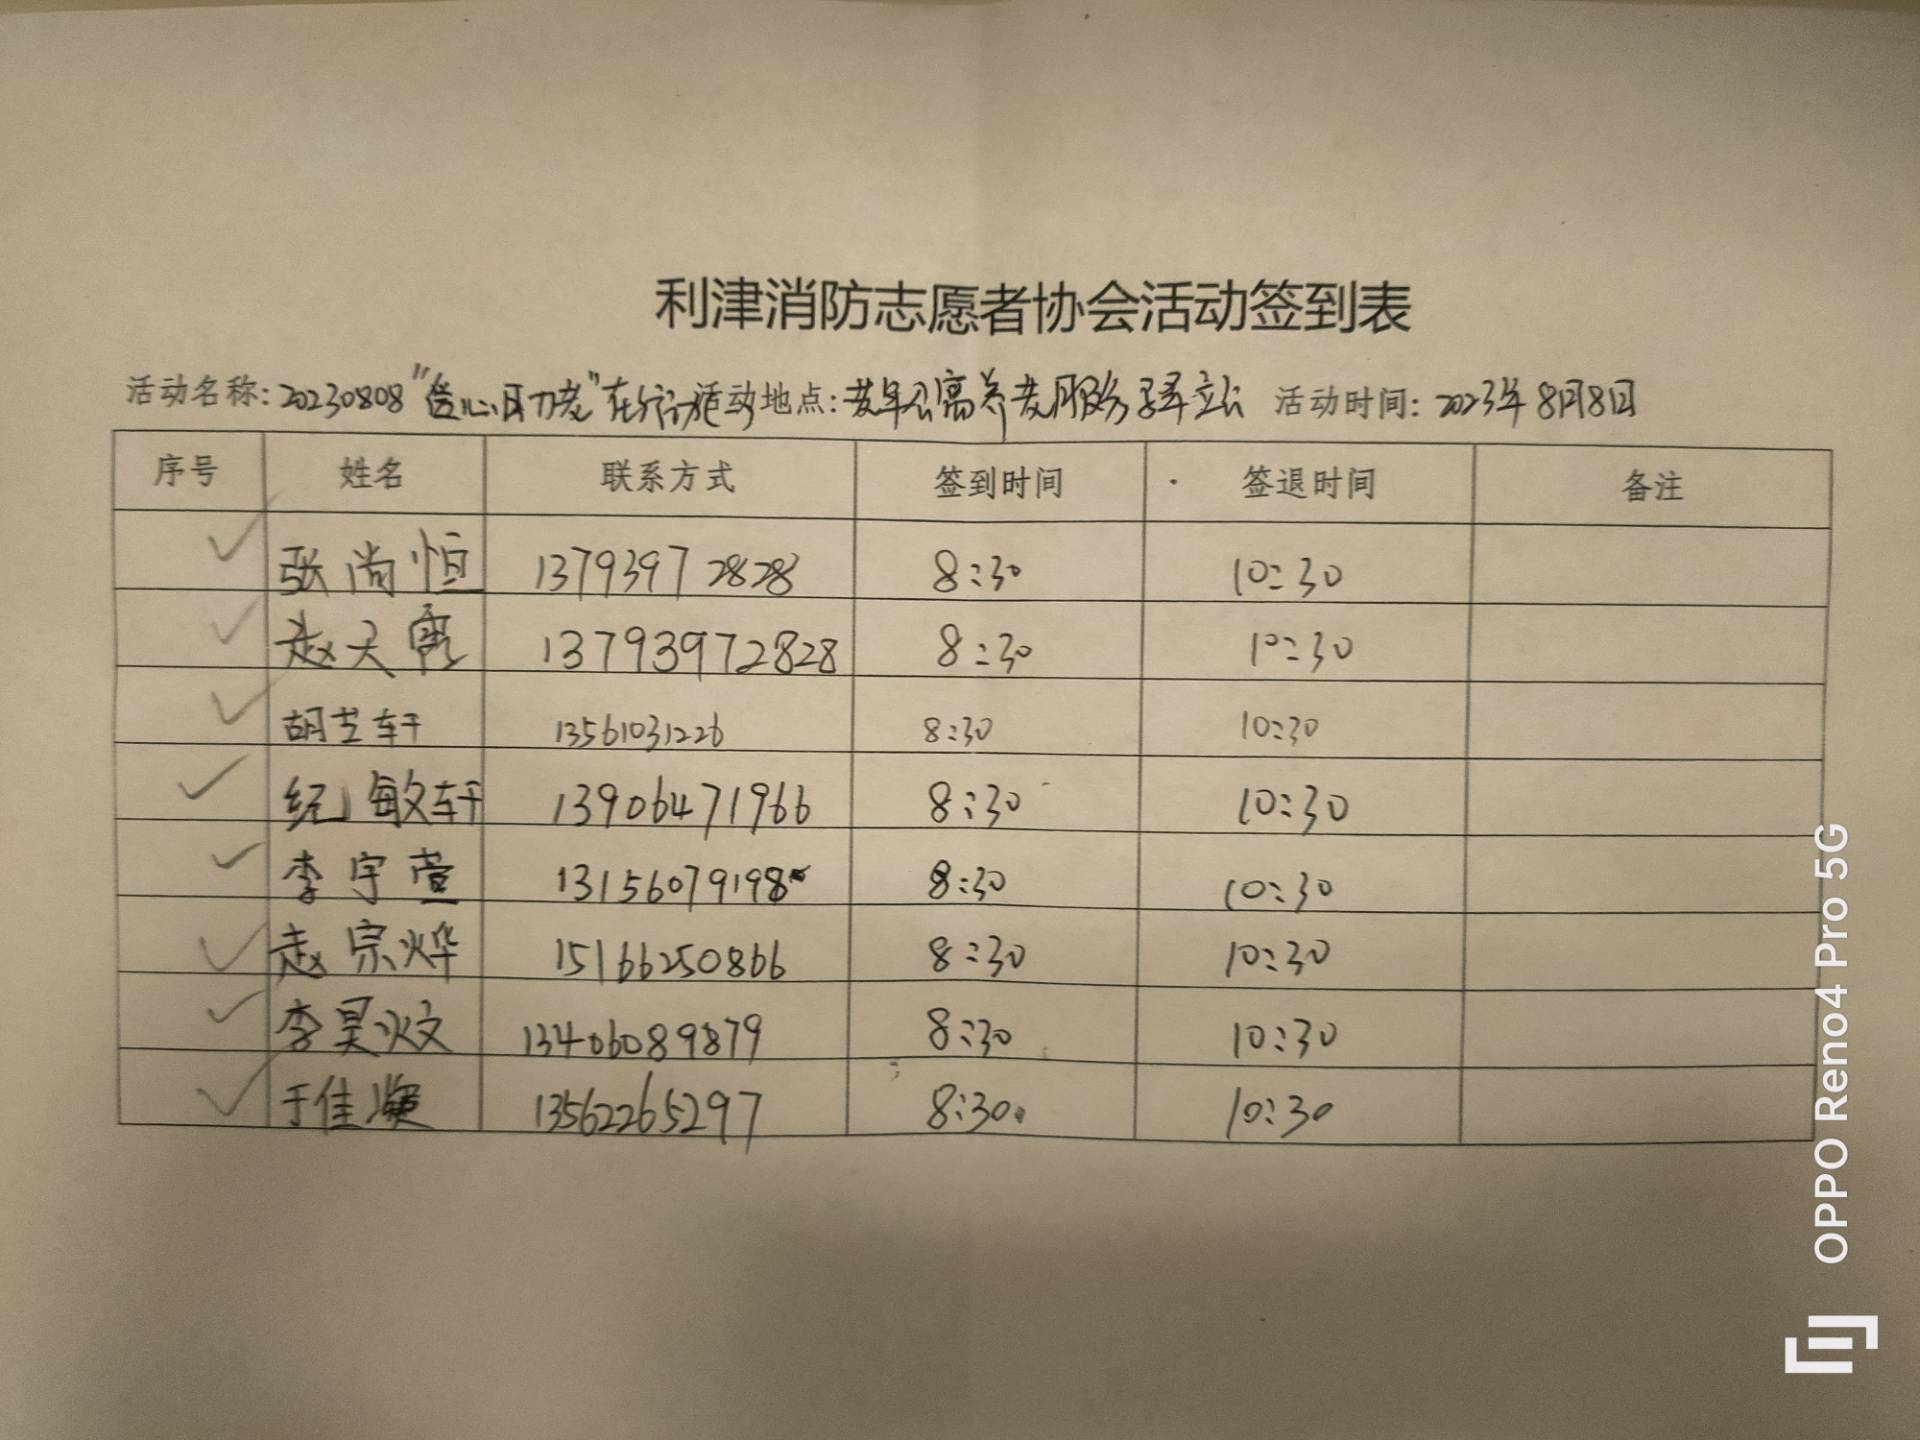 利津消防志愿者协会活动签到表
活动名称: 20230808 "爱心助老"在行动 活动地点: 公寓养老服务驿站 活动时间: 2023年8月8日
序号 姓名 联系方式 签到时间 签退时间 备注
✓ 张尚恒 13793972828 8:30 10:30
✓ 赵天 13793972828 8:30 10:30
✓ 胡芝轩 13561031226 8:30 10:30
✓ 纪敏轩 13906471966 8:30 10:30
✓ 李宇萱 13156079198 8:30 10:30
✓ 赵宗烨 15166250866 8:30 10:30
✓ 李昊炆 13406089879 8:30 10:30
✓ 于佳凝 13562265297 8:30 10:30
OPPO Reno4 Pro 5G